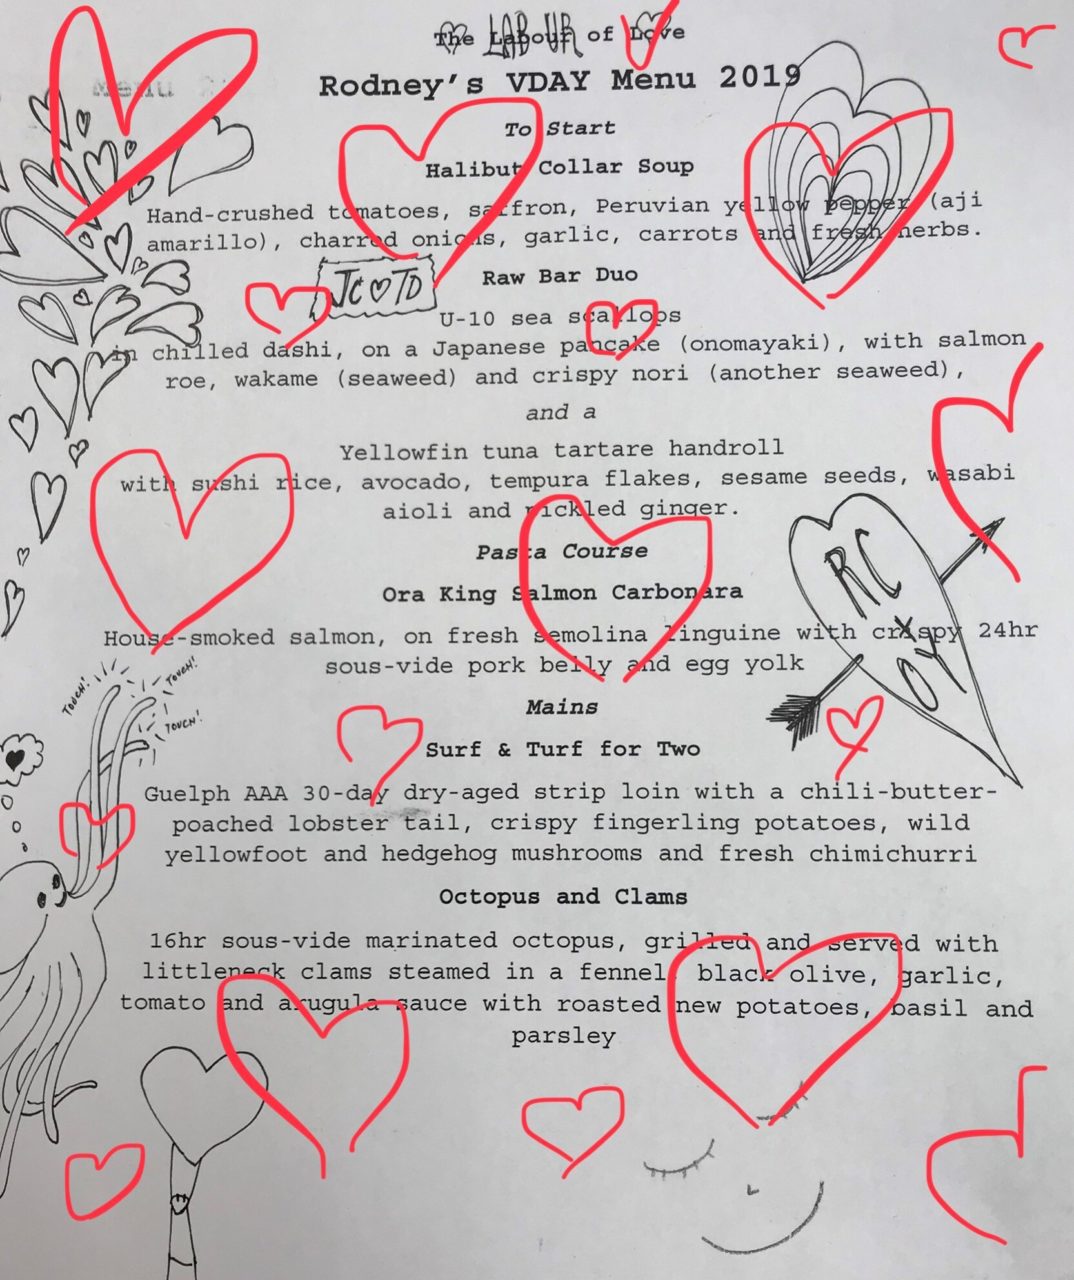 The Labour of Love
LABOUR
Rodney's VDAY Menu 2019
Menu
To Start
Halibut Collar Soup
Hand-crushed tomatoes, saffron, Peruvian yellow pepper (aji
amarillo), charred onions, garlic, carrots and fresh herbs.
Raw Bar Duo
JC ♡ TD
U-10 sea scallops
in chilled dashi, on a Japanese pancake (onomayaki), with salmon
roe, wakame (seaweed) and crispy nori (another seaweed),
and a
Yellowfin tuna tartare handroll
with sushi rice, avocado, tempura flakes, sesame seeds, wasabi
aioli and pickled ginger.
Pasta Course
Ora King Salmon Carbonara
RC
X
OY
House-smoked salmon, on fresh semolina linguine with crispy 24hr
sous-vide pork belly and egg yolk
TOUCH!
TOUCH!
TOUCH!
Mains
Surf & Turf for Two
Guelph AAA 30-day dry-aged strip loin with a chili-butter-
poached lobster tail, crispy fingerling potatoes, wild
yellowfoot and hedgehog mushrooms and fresh chimichurri
Octopus and Clams
16hr sous-vide marinated octopus, grilled and served with
littleneck clams steamed in a fennel, black olive, garlic,
tomato and arugula sauce with roasted new potatoes, basil and
parsley